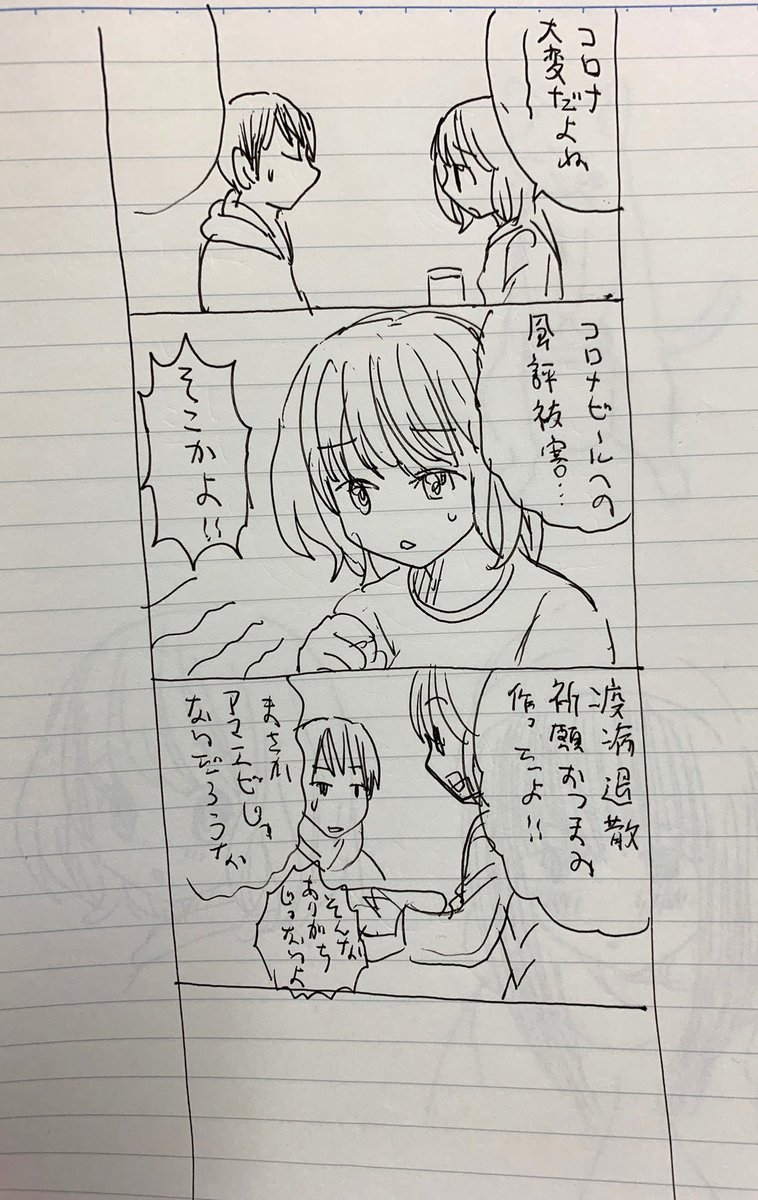 コロナ
大変だよね
コロナビールへの
風評被害…
そこかよ!!
疫病退散
祈願おつまみ
作ったよ!!
まさか
アマエビじゃ
ないだろうな
そんな
ありがち
じゃないよ